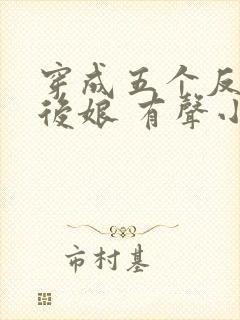 穿成五个反
後娘 有聲小
市村基